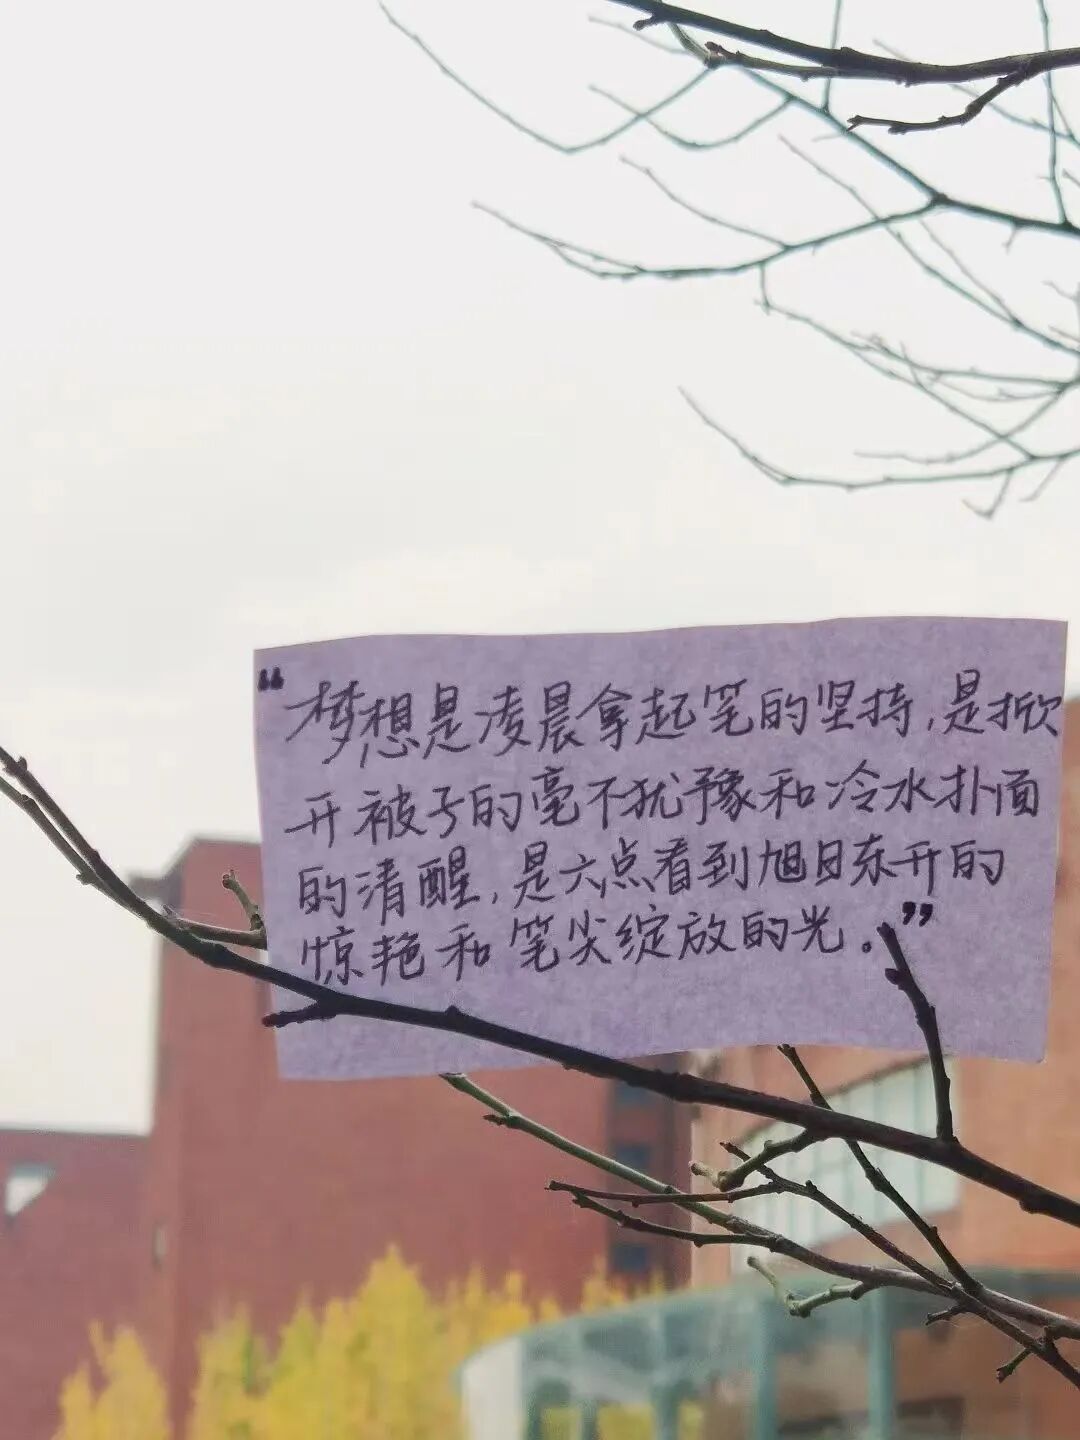 “梦想是凌晨拿起笔的坚持,是掀
开被子的毫不犹豫和冷水扑面
的清醒,是六点看到旭日东升的
惊艳和笔尖绽放的光。”